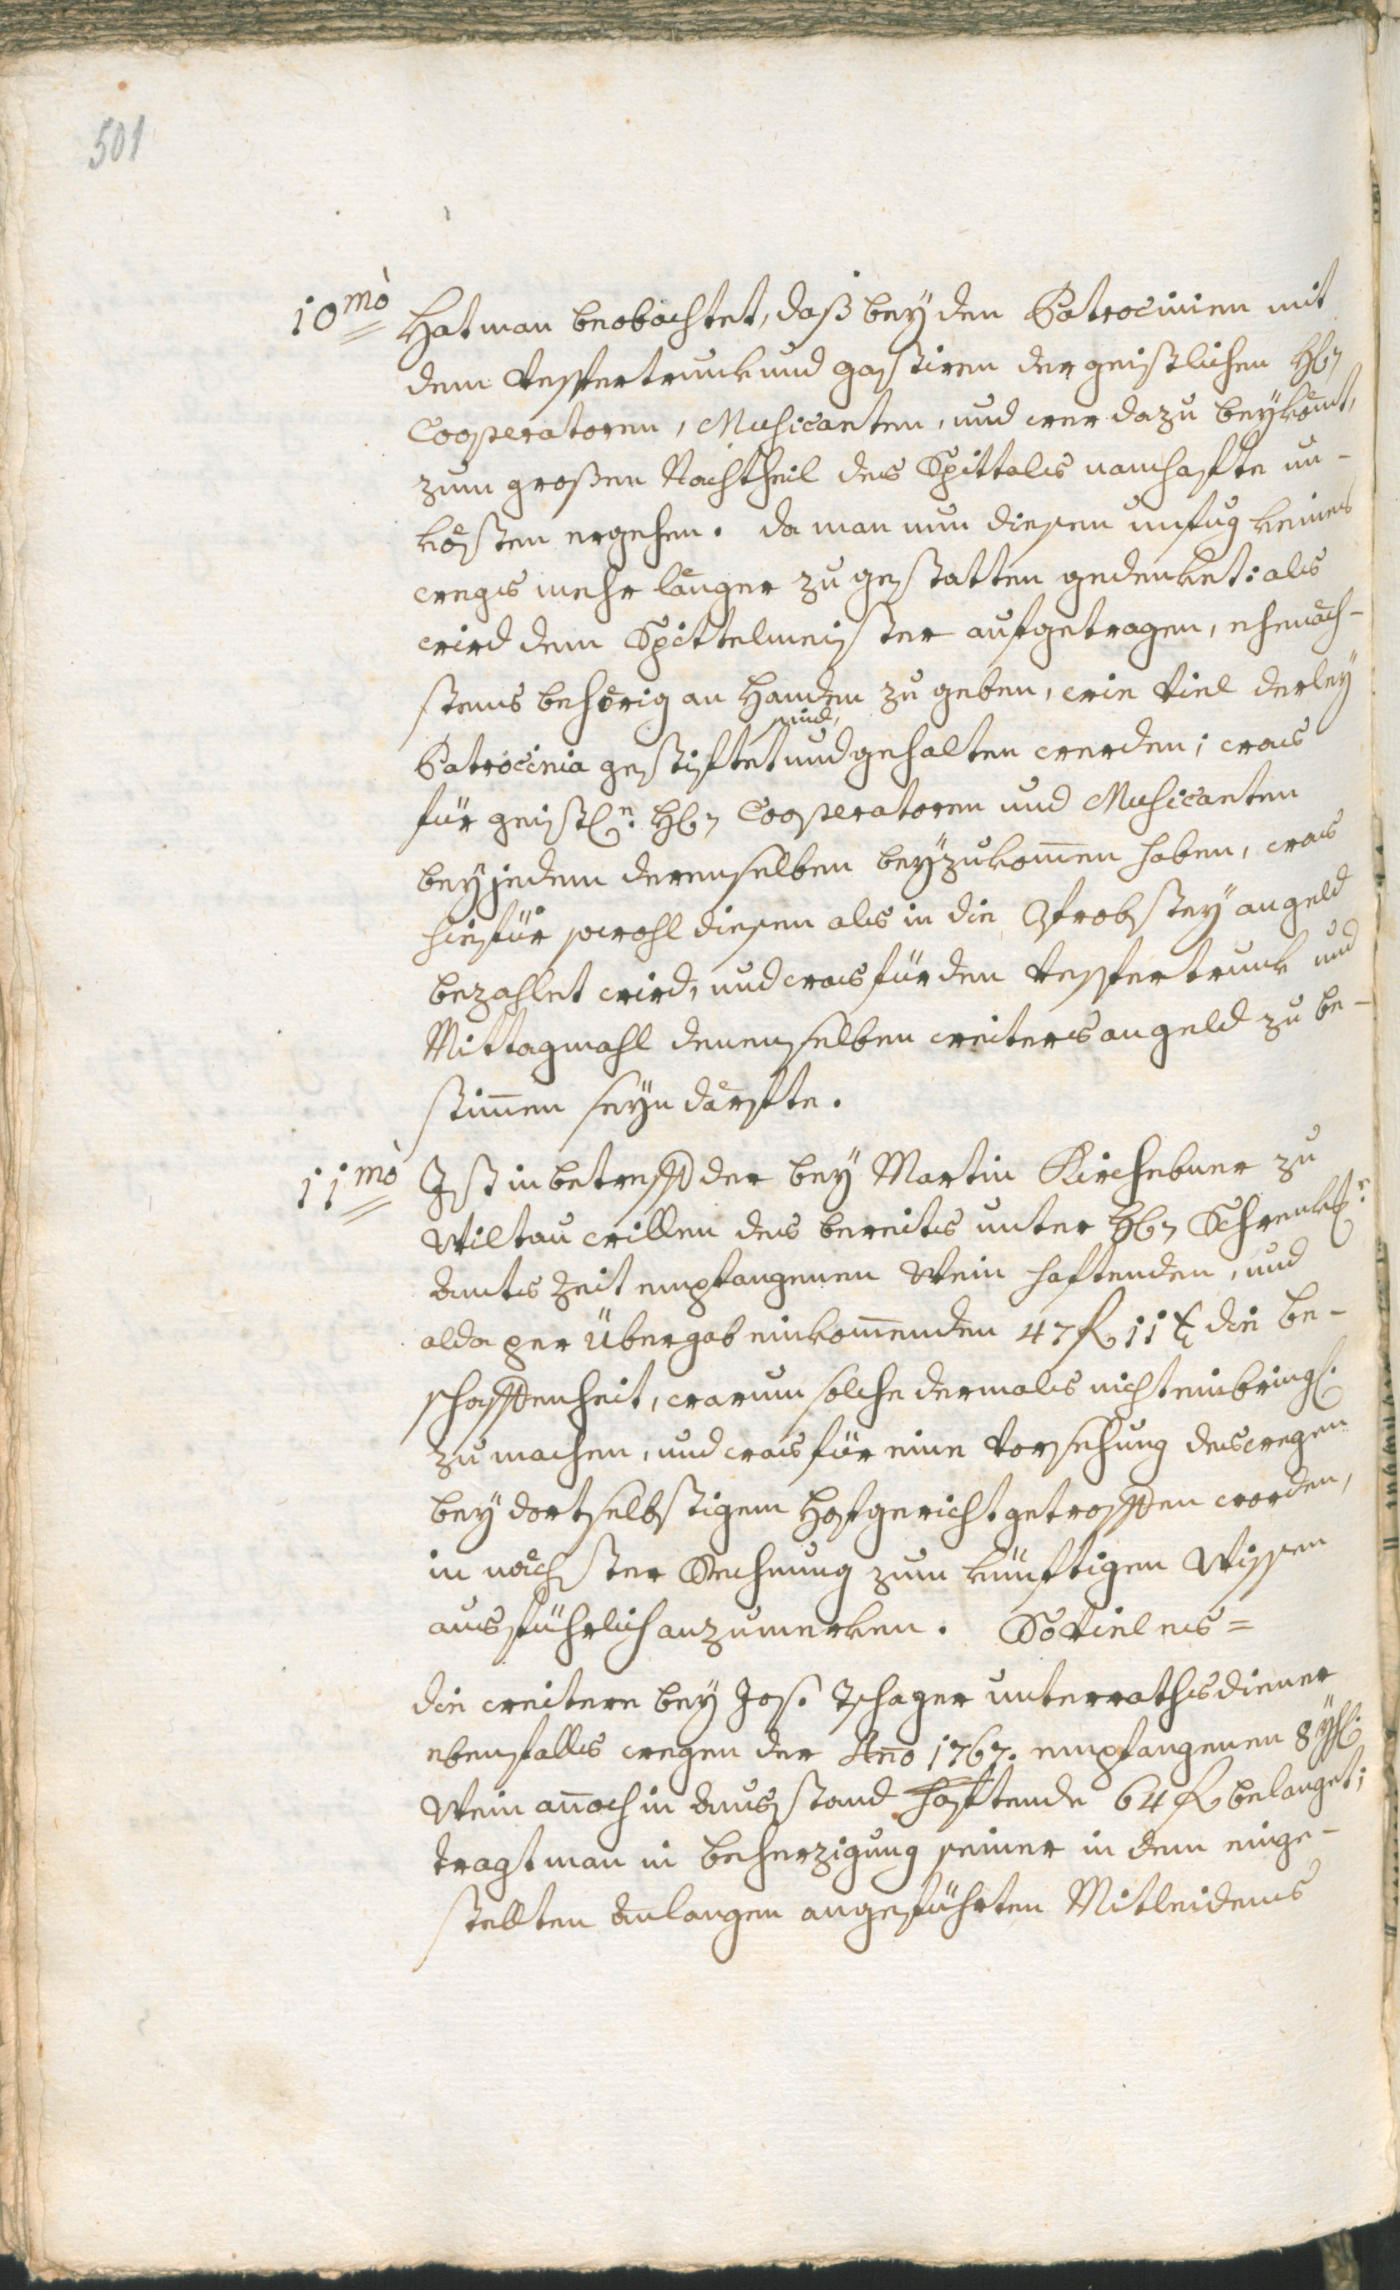 501
10mò Hat man beobachtet, daß bey den Patrocinien mit
dem Vespertrunk und gastiren der geistlichen Hh
Cooperatoren, Musicanten, und wer dazu beykömt,
zum großen Nachtheil des Spittals namhafte un-
kösten ergehen. da man nun diesen unfug keines
wegs mehr länger zu gestatten gedenket: als
wird dem Spittelmeister aufgetragen, ehenäch-
stens behörig an Handen zu geben, wie viel derley
sind,
Patrocinia gestiftet und gehalten werden; was
für geistln. Hh Cooperatoren und Musicanten
bey jedem derenselben beyzukommen haben, was
hiefür sowohl diesen als in die Probstey an geld
bezahlet wird, und was für den Vespertrunk und
Mittagmahl denenselben weiters an geld zu be-
stimmen seyn därfte.
11mò Ist in betreff der bey Martin Kirchebner zu
Wiltau willen des bereits unter Hh Schrenkl.
Amts Zeit empfangenen Wein haftenden, und
alda per Übergab einkommenden 47 f 11 x die be-
schaffenheit, warum solche dermals nicht einbringl.
zu machen, und was für eine Vorsehung deswegen
bey dortselbstigem Hofgericht getroffen worden,
in nächster Rechnung zum künftigen Wissen
ausführlich anzumerken. So viel es=
die weitere bey Jos. Tschager unterrathsdiener
ebenfalls wegen der Ano 1767. empfangenen 8 yh:
Wein annoch in Ausstand haftende 64 f belanget;
tragt man in beherzigung seiner in dem einge-
stellten Anlangen angeführten Mitleidens